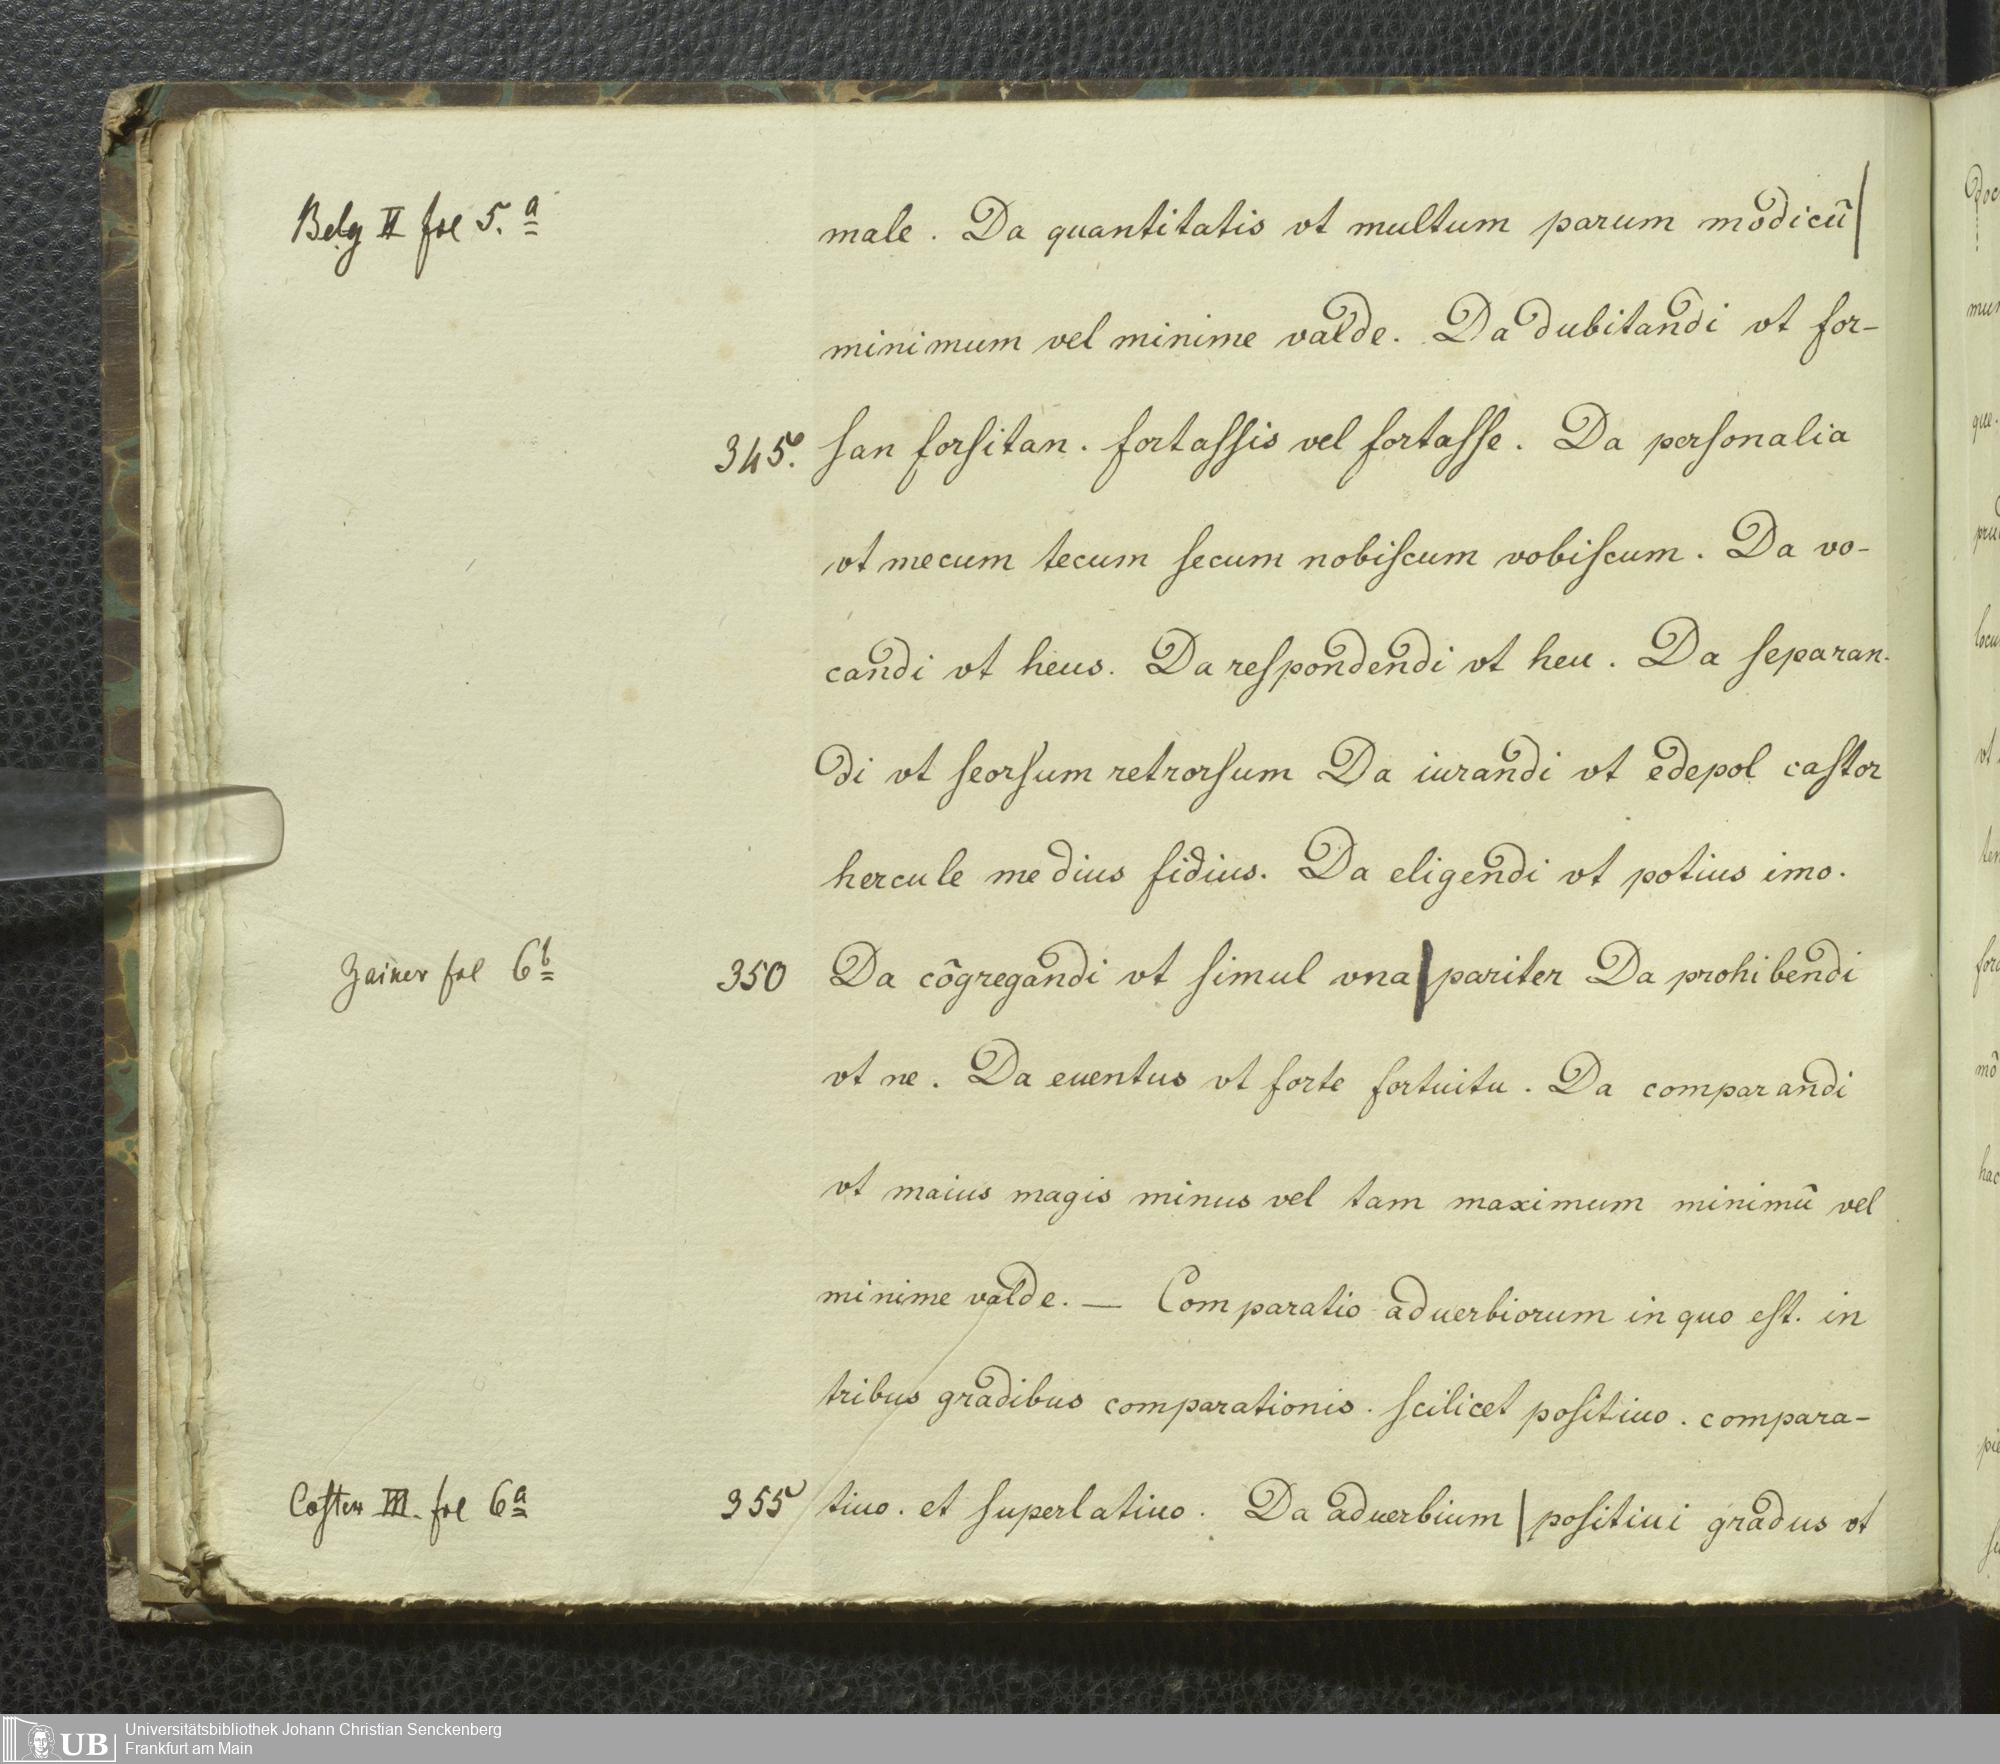 Belg II fol 5.a
male. Da quantitatis vt multum parum modicū|
minimum vel minime valde. Da dubitandi vt for-
345. ſan forſitan. fortaſſis vel fortaſſe. Da perſonalia
vt mecum tecum ſecum nobiſcum vobiſcum. Da vo-
candi vt heus. Da reſpondendi vt heu. Da ſeparan-
di vt ſeorſum retrorſum Da iurandi vt edepol caſtor
hercule medius fidius. Da eligendi vt potius imo.
Zainer fol 6b
350 Da cōgregandi vt ſimul vna|pariter Da prohibendi
vt ne. Da euentus vt forte fortuitu. Da comparandi
vt maius magis minus vel tam maximum minimū vel
minime valde. — Comparatio aduerbiorum in quo eſt. in
tribus gradibus comparationis. ſcilicet poſitiuo. compara-
Coſter III. fol 6a
355 tiuo. et ſuperlatiuo. Da aduerbium|poſitiui gradus vt
UB
Universitätsbibliothek Johann Christian Senckenberg
Frankfurt am Main